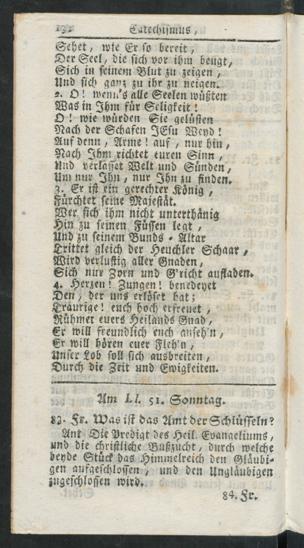 192 Catechismus,
Sehet, wie Er so bereit,
Der Seel, die sich vor ihm beugt,
Sich in seinem Blut zu zeigen,
Und sich ganz zu ihr zu neigen.
2. O! wenn's alle Seelen wüßten
Was in Ihm für Seligkeit!
O! wie würden Sie gelüsten
Nach der Schafen JEsu Weyd!
Auf denn, Arme! auf, nur hin,
Nach Ihm richtet euren Sinn,
Und verlasset Welt und Sünden,
Um nur Ihn, nur Ihn zu finden.
3. Er ist ein gerechter König,
Fürchtet seine Majestät.
Wer sich ihm nicht unterthänig
Hin zu seinen Füssen legt,
Und zu seinem Bunds-Altar
Trittet gleich der Heuchler Schaar,
Wird verlustig aller Gnaden,
Sich nur Zorn und G'richt aufladen.
4. Herzen! Zungen! benedeyet
Den, der uns erlöset hat;
Traurige! euch hoch erfreuet,
Rühmet euers Heilands Gnad,
Er will freundlich euch anseh'n,
Er will hören euer Fleh'n,
Unser Lob soll sich ausbreiten,
Durch die Zeit und Ewigkeiten.
Am LI. 51. Sonntag.
83. Fr. Was ist das Amt der Schlüsseln?
Ant Die Predigt des Heil. Evangeliums,
und die christliche Bußzucht, durch welche
beyde Stück das Himmelreich den Gläubi-
gen aufgeschlossen, und den Ungläubigen
zugeschlossen wird.
84. Fr.